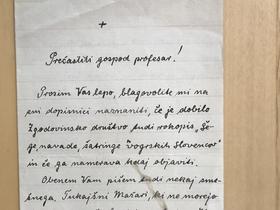 +
Prečastiti gospod profesar!
Prosim Vas lepo, blagovolite mi na
eni dopisnici naznaniti, če je dobilo
Zgodovinsko društvo tudi rokopis, Še-
ge, navade, šatringe "vogrskih Slovencov"
in če ga namerava kedaj objaviti.
Obenem Vam pišem tudi nekaj sme-
šnega. Tukajšni Mažari, ki ne morejo